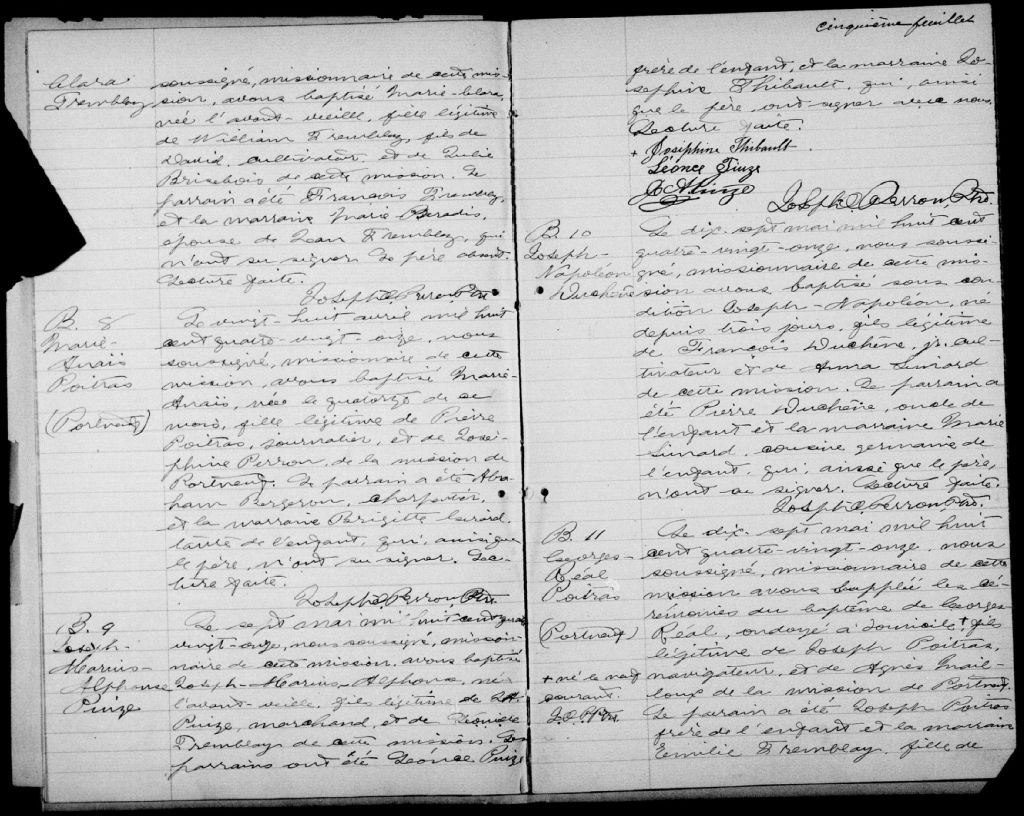 cinquième feuillet
Clara
Tremblay
soussigné, missionnaire de cette mis-
sion, avons baptisé Marie-Clara,
née l'avant-veille, fille légitime
de William Tremblay, fils de
David, cultivateur, et de Julie
Brisebois de cette mission. Le
parrain a été François Tremblay,
et la marraine Marie Paradis,
épouse de Jean Tremblay, qui
n'ont su signer. Le père absent.
Lecture faite.
Joseph O. Perron Ptre
B. 8
Marie-
Anaïs
Poitras
(Portneuf)
Le vingt-huit avril mil huit
cent quatre-vingt-onze, nous
soussigné, missionnaire de cette
mission, avons baptisé Marie-
Anaïs, née le quatorze de ce
mois, fille légitime de Pierre
Poitras, journalier, et de José-
phine Perron, de la mission de
Portneuf. Le parrain a été Abra-
ham Bergeron, charpentier,
et la marraine Brigitte Girard,
tante de l'enfant, qui, ainsi que
le père, n'ont su signer. Lec-
ture faite.
Joseph O. Perron Ptre
B. 9
Joseph-
Marius-
Alphonse
Pinze
Le sept mai mil huit cent quatre
vingt-onze, nous soussigné, mission-
naire de cette mission, avons baptisé
Joseph-Marius-Alphonse, né
l'avant-veille, fils légitime de
Pinze, marchand, et de
Tremblay de cette mission. Les
parrains ont été Léonce Pinze
frère de l'enfant, et la marraine Jo-
sephine Thibault, qui, ainsi
que le père, ont signer avec nous.
Lecture faite.
+ Joséphine Thibault
Léonce Pinze
Pinze
Joseph O. Perron Ptre.
B. 10
Joseph-
Napoléon
Duchêne
Le dix-sept mai mil huit cent
quatre-vingt-onze, nous soussi-
gné, missionnaire de cette mis-
sion avons baptisé sous con-
dition Joseph-Napoléon, né
depuis trois jours, fils légitime
de François Duchêne, jr. cul-
tivateur et de Anna Simard
de cette mission. Le parrain a
été Pierre Duchêne, oncle de
l'enfant et la marraine Marie
Simard, cousine germaine de
l'enfant, qui, aussi que le père,
n'ont su signer. Lecture faite.
Joseph O. Perron Ptre.
B. 11
Georges-
Réal
Poitras
(Portneuf)
+ né le neuf
courant.
J.O.P. Ptre.
Le dix-sept mai mil huit
cent quatre-vingt-onze, nous
soussigné, missionnaire de cette
mission avons suppléé les cé-
rémonies du baptême de Georges
Réal, ondoyé à domicile +, fils
légitime de Joseph Poitras,
navigateur, et de Agnès Mail-
loux de la mission de Portneuf.
Le parrain a été Joseph Poitras
frère de l'enfant et la marraine
Emilie Tremblay, fille de